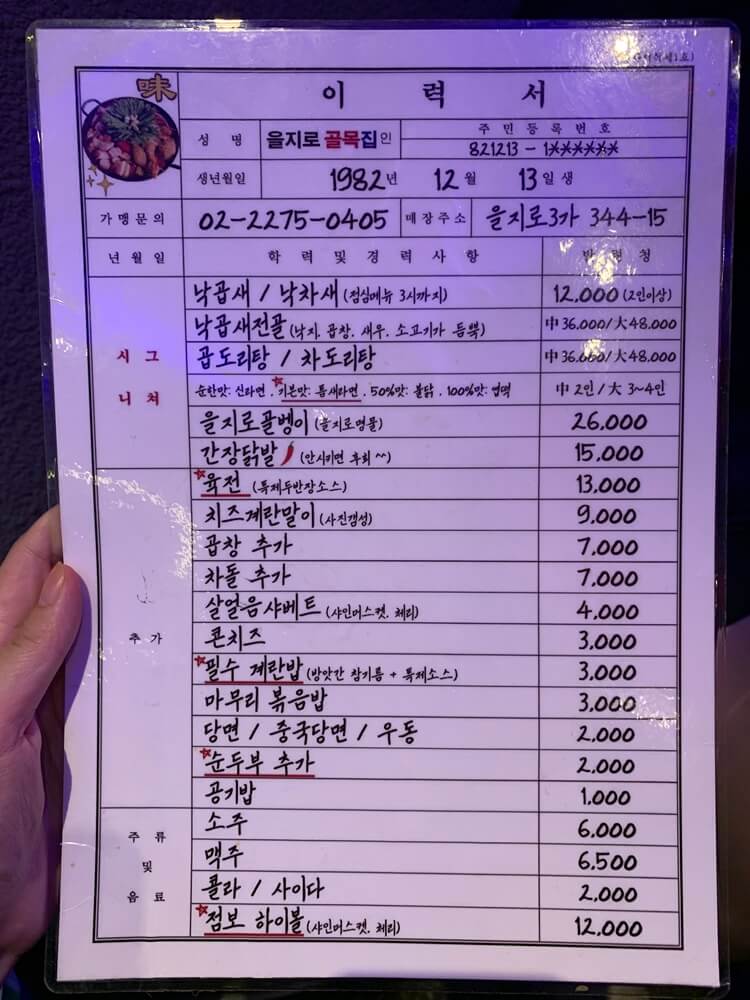 味
이 력 서
성 명 을지로 골목집인
주 민 등 록 번 호
821213 - 1******
생년월일 1982년 12월 13일생
가맹문의 02-2275-0405 매장주소 을지로3가 344-15
년 월 일 학 력 및 경 력 사 항
시 그 니 쳐
낙곱새 / 낙차새 (점심메뉴 3시까지) 12.000 (2인이상)
낙곱새전골 (낙지. 곱창. 새우. 소고기가 듬뿍) 中 36.000/大 48.000
곱도리탕 / 차도리탕 中 36.000/大 48.000
순한맛: 신라면 . *기본맛: 틈새라면 . 50%맛: 불닭 . 100%맛: 염떡 中 2인 / 大 3~4인
을지로골벵이 (을지로명물) 26,000
간장닭발 (안시키면 후회 ^^) 15.000
추 가
*육전 (특제두반장소스) 13.000
치즈계란말이 (사진갬성) 9.000
곱창 추가 7.000
차돌 추가 7.000
살얼음샤베트 (샤인머스켓. 체리) 4.000
콘치즈 3.000
*필수 계란밥 (방앗간 참기름 + 특제소스) 3.000
마무리 볶음밥 3.000
당면 / 중국당면 / 우동 2.000
*순두부 추가 2.000
공기밥 1.000
주 류 및 음 료
소주 6.000
맥주 6.500
콜라 / 사이다 2.000
*점보 하이볼 (샤인머스켓. 체리) 12.000